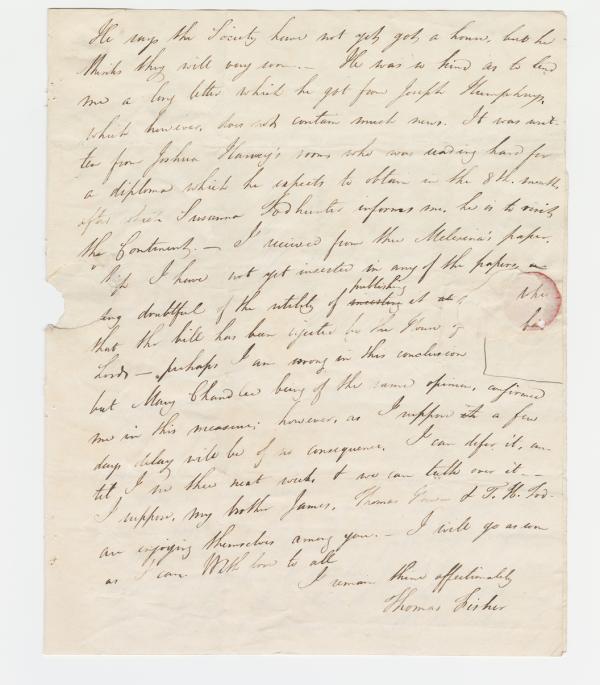 He says the Society have not yet got a house, but he
thinks they will very soon. — He was so kind as to lend
me a long letter which he got from Joseph Humphreys,
which however, does not contain much news. It was writ-
ten from Joshua Harvey's rooms who was reading hard for
a diploma which he expects to obtain in the 8th. month,
after which Susanna Todhunter informs me, he is to visit
the Continent. — I received from thee Melesina's paper.
I have not yet inserted in any of the papers,
ing doubtful of the utility of publishing it
that the bill has been rejected by the House of
Lords — perhaps I am wrong in this conclusion
but Mary Chandlee being of the same opinion, confirmed
me in this measure; however, as I suppose a few
days delay will be of no consequence, I can defer it, un-
til I see thee next week, & we can talk over it —
I suppose, my brother James, Thomas & T. H. Tod.
are enjoying themselves among you. — I will go as soon
as I can With love to all
I remain thine affectionately
Thomas Fisher